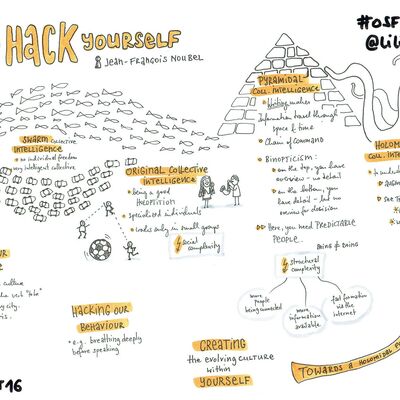 HACK YOURSELF
JEAN-FRANÇOIS NOUBEL
#OSF
@Lil
SWARM collective
INTELLIGENCE
no individual freedom
very intelligent collective
ORIGINAL COLLECTIVE
INTELLIGENCE
being a good
specialised individuals
works only in small groups
social
complexity
PYRAMIDAL
COLL. INTELLIGENCE
History maker
Information travel through
space & time
Chain of command
BINOPTICISM:
on the top, you have
overview - no detail
on the bottom, you
have detail - but no
for decision
Here, you need PREDICTABLE
PEOPLE.
DOING & DOING
structural
complexity
more
people
being connected
more
information
available
fast formation
via the
internet
HOLOM
COLL. INT
UR
culture
verb "to be"
city.
HACKING OUR
BEHAVIOUR
e.g. breathing deeply
before speaking
CREATING
the evolving culture
within
YOURSELF
TOWARDS A HOLOMIDAL
16